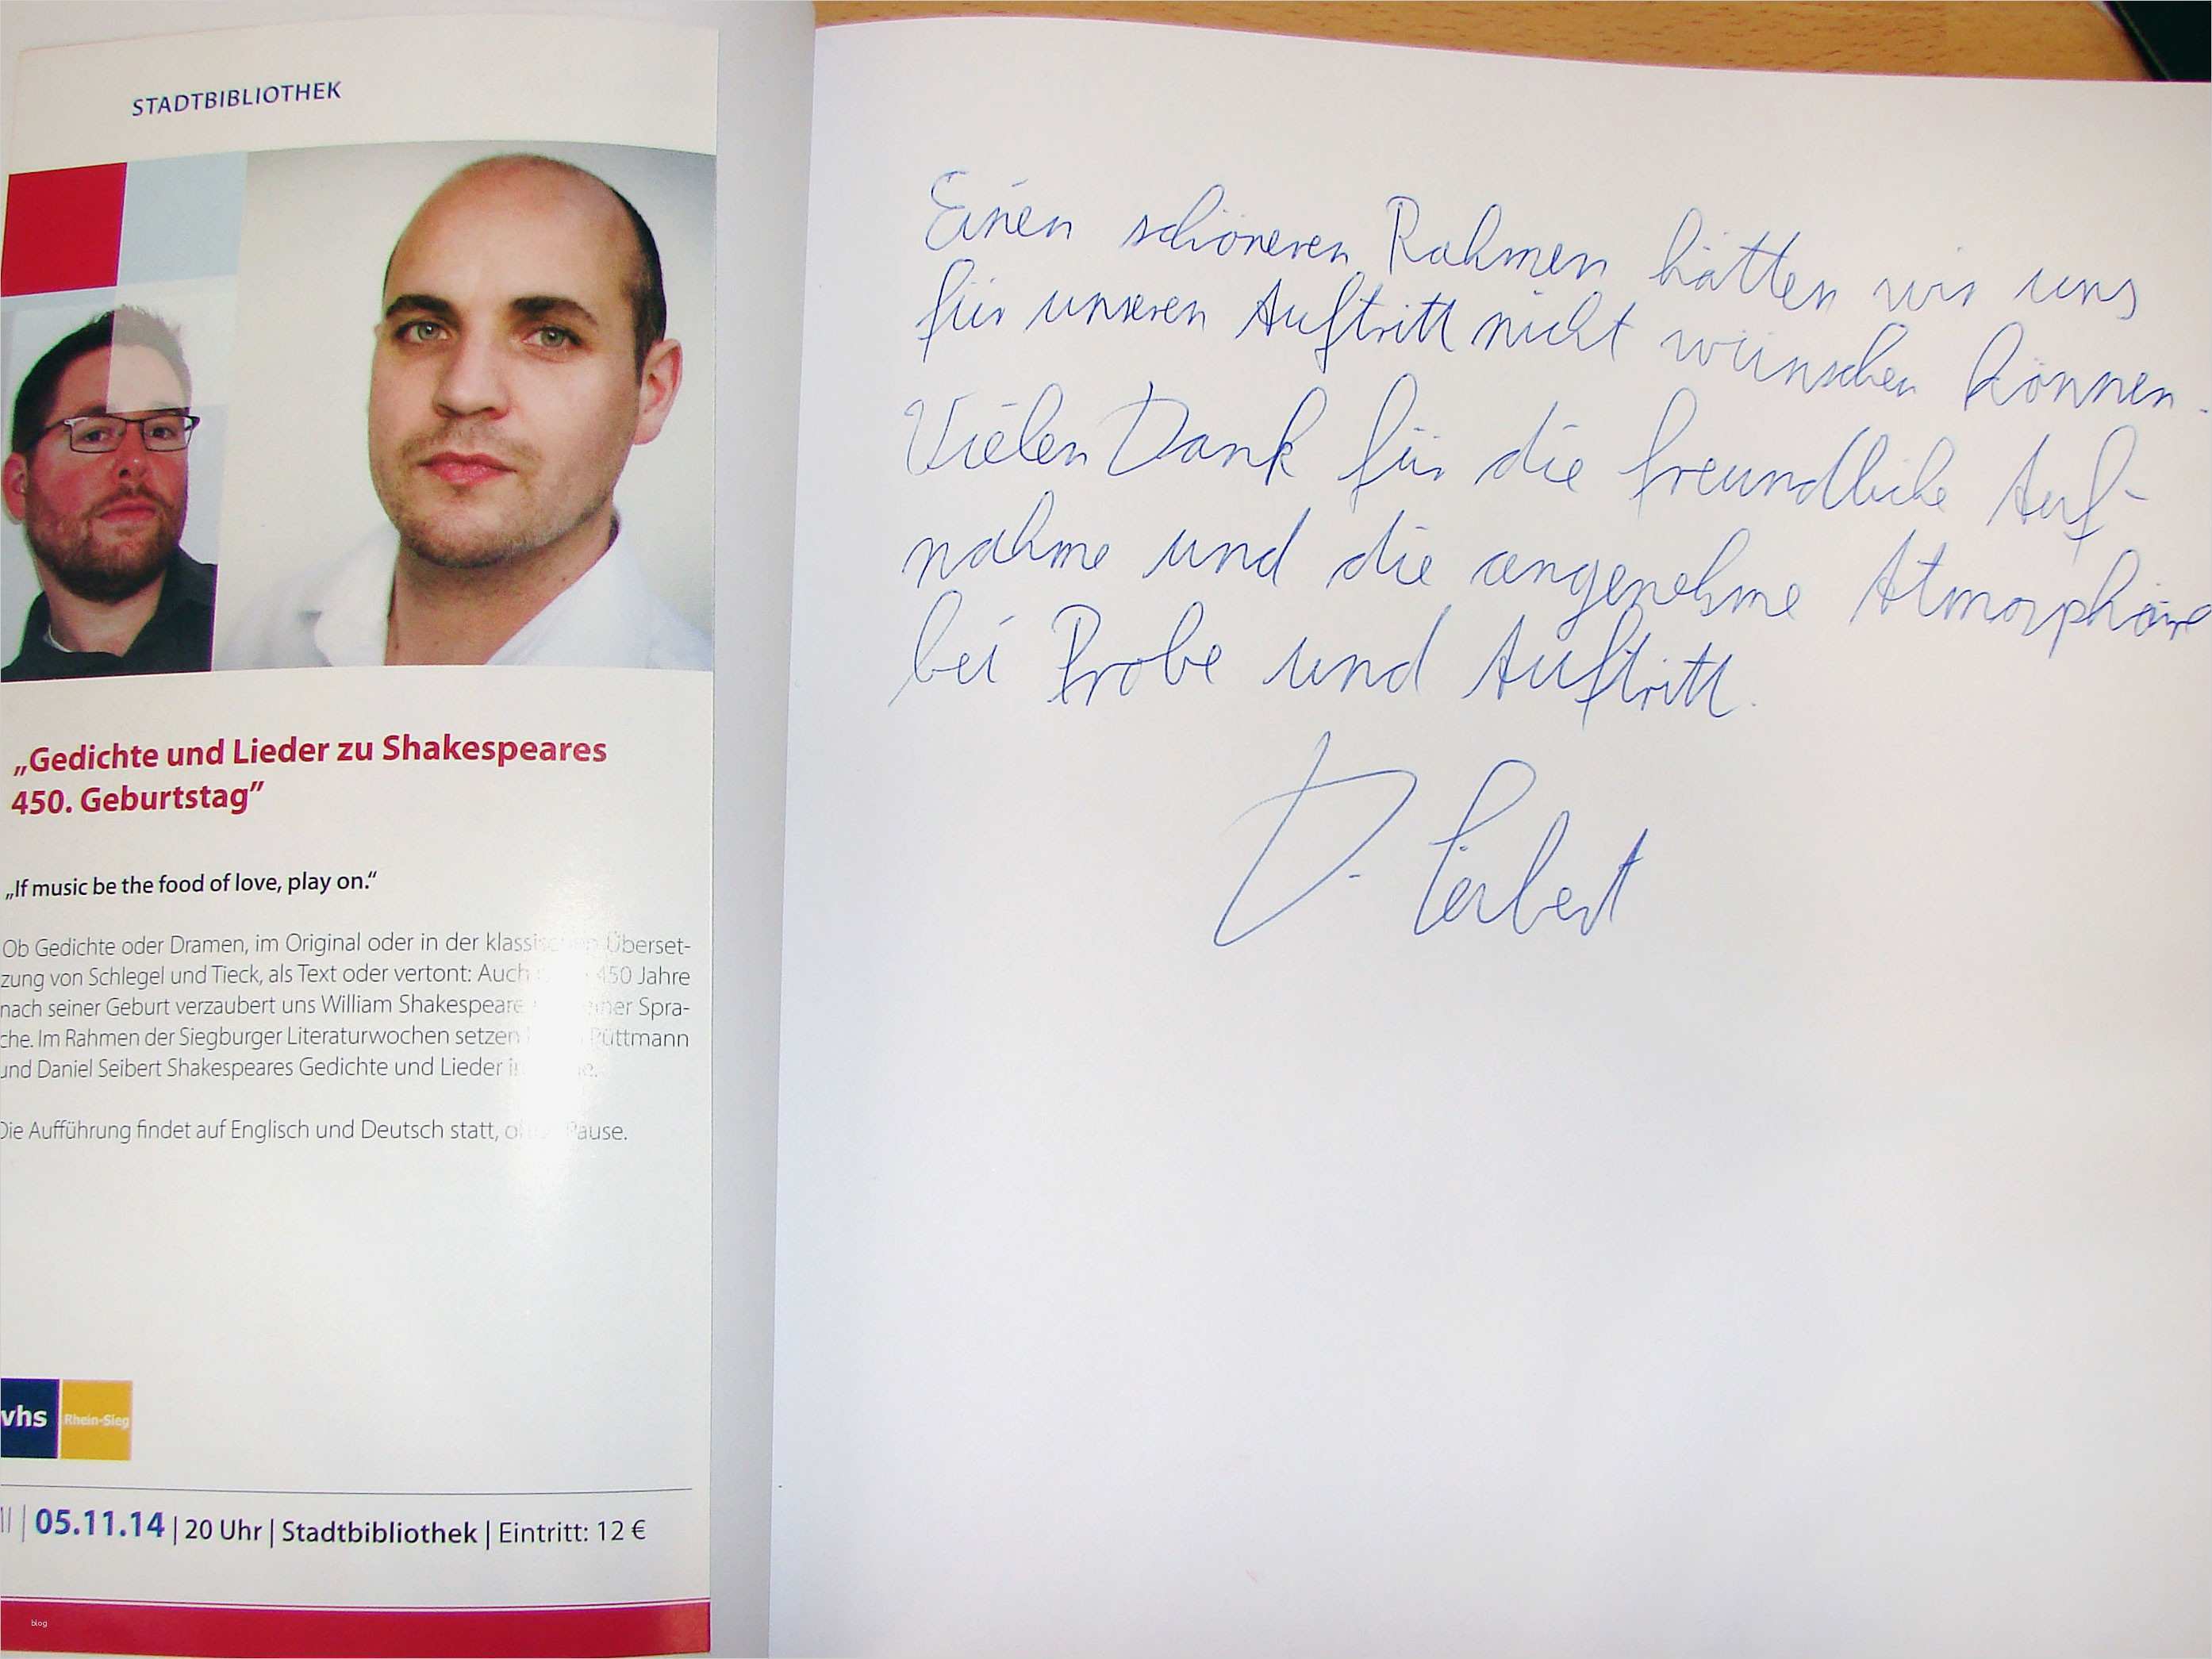 STADTBIBLIOTHEK
„Gedichte und Lieder zu Shakespeares
450. Geburtstag”
„If music be the food of love, play on.“
Ob Gedichte oder Dramen, im Original oder in der klassischen Überset-
zung von Schlegel und Tieck, als Text oder vertont: Auch 450 Jahre
nach seiner Geburt verzaubert uns William Shakespeare seiner Spra-
che. Im Rahmen der Siegburger Literaturwochen setzen Püttmann
und Daniel Seibert Shakespeares Gedichte und Lieder
Die Aufführung findet auf Englisch und Deutsch statt, ohne Pause.
vhs Rhein-Sieg
05.11.14 | 20 Uhr | Stadtbibliothek | Eintritt: 12 €
blog
Einen schöneren Rahmen hätten wir uns
für unseren Auftritt nicht wünschen können.
Vielen Dank für die freundliche Auf-
nahme und die angenehme Atmosphäre
bei Probe und Auftritt.
D. Seibert